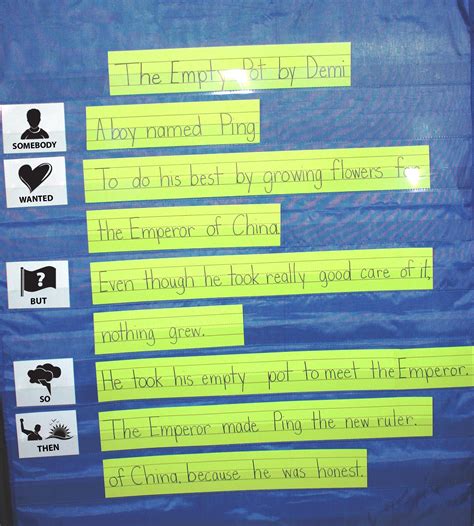 The Empty Pot by Demi
SOMEBODY
A boy named Ping
WANTED
To do his best by growing flowers for
the Emperor of China
?
BUT
Even though he took really good care of it,
nothing grew.
SO
He took his empty pot to meet the Emperor.
THEN
The Emperor made Ping the new ruler.
of China. because he was honest.